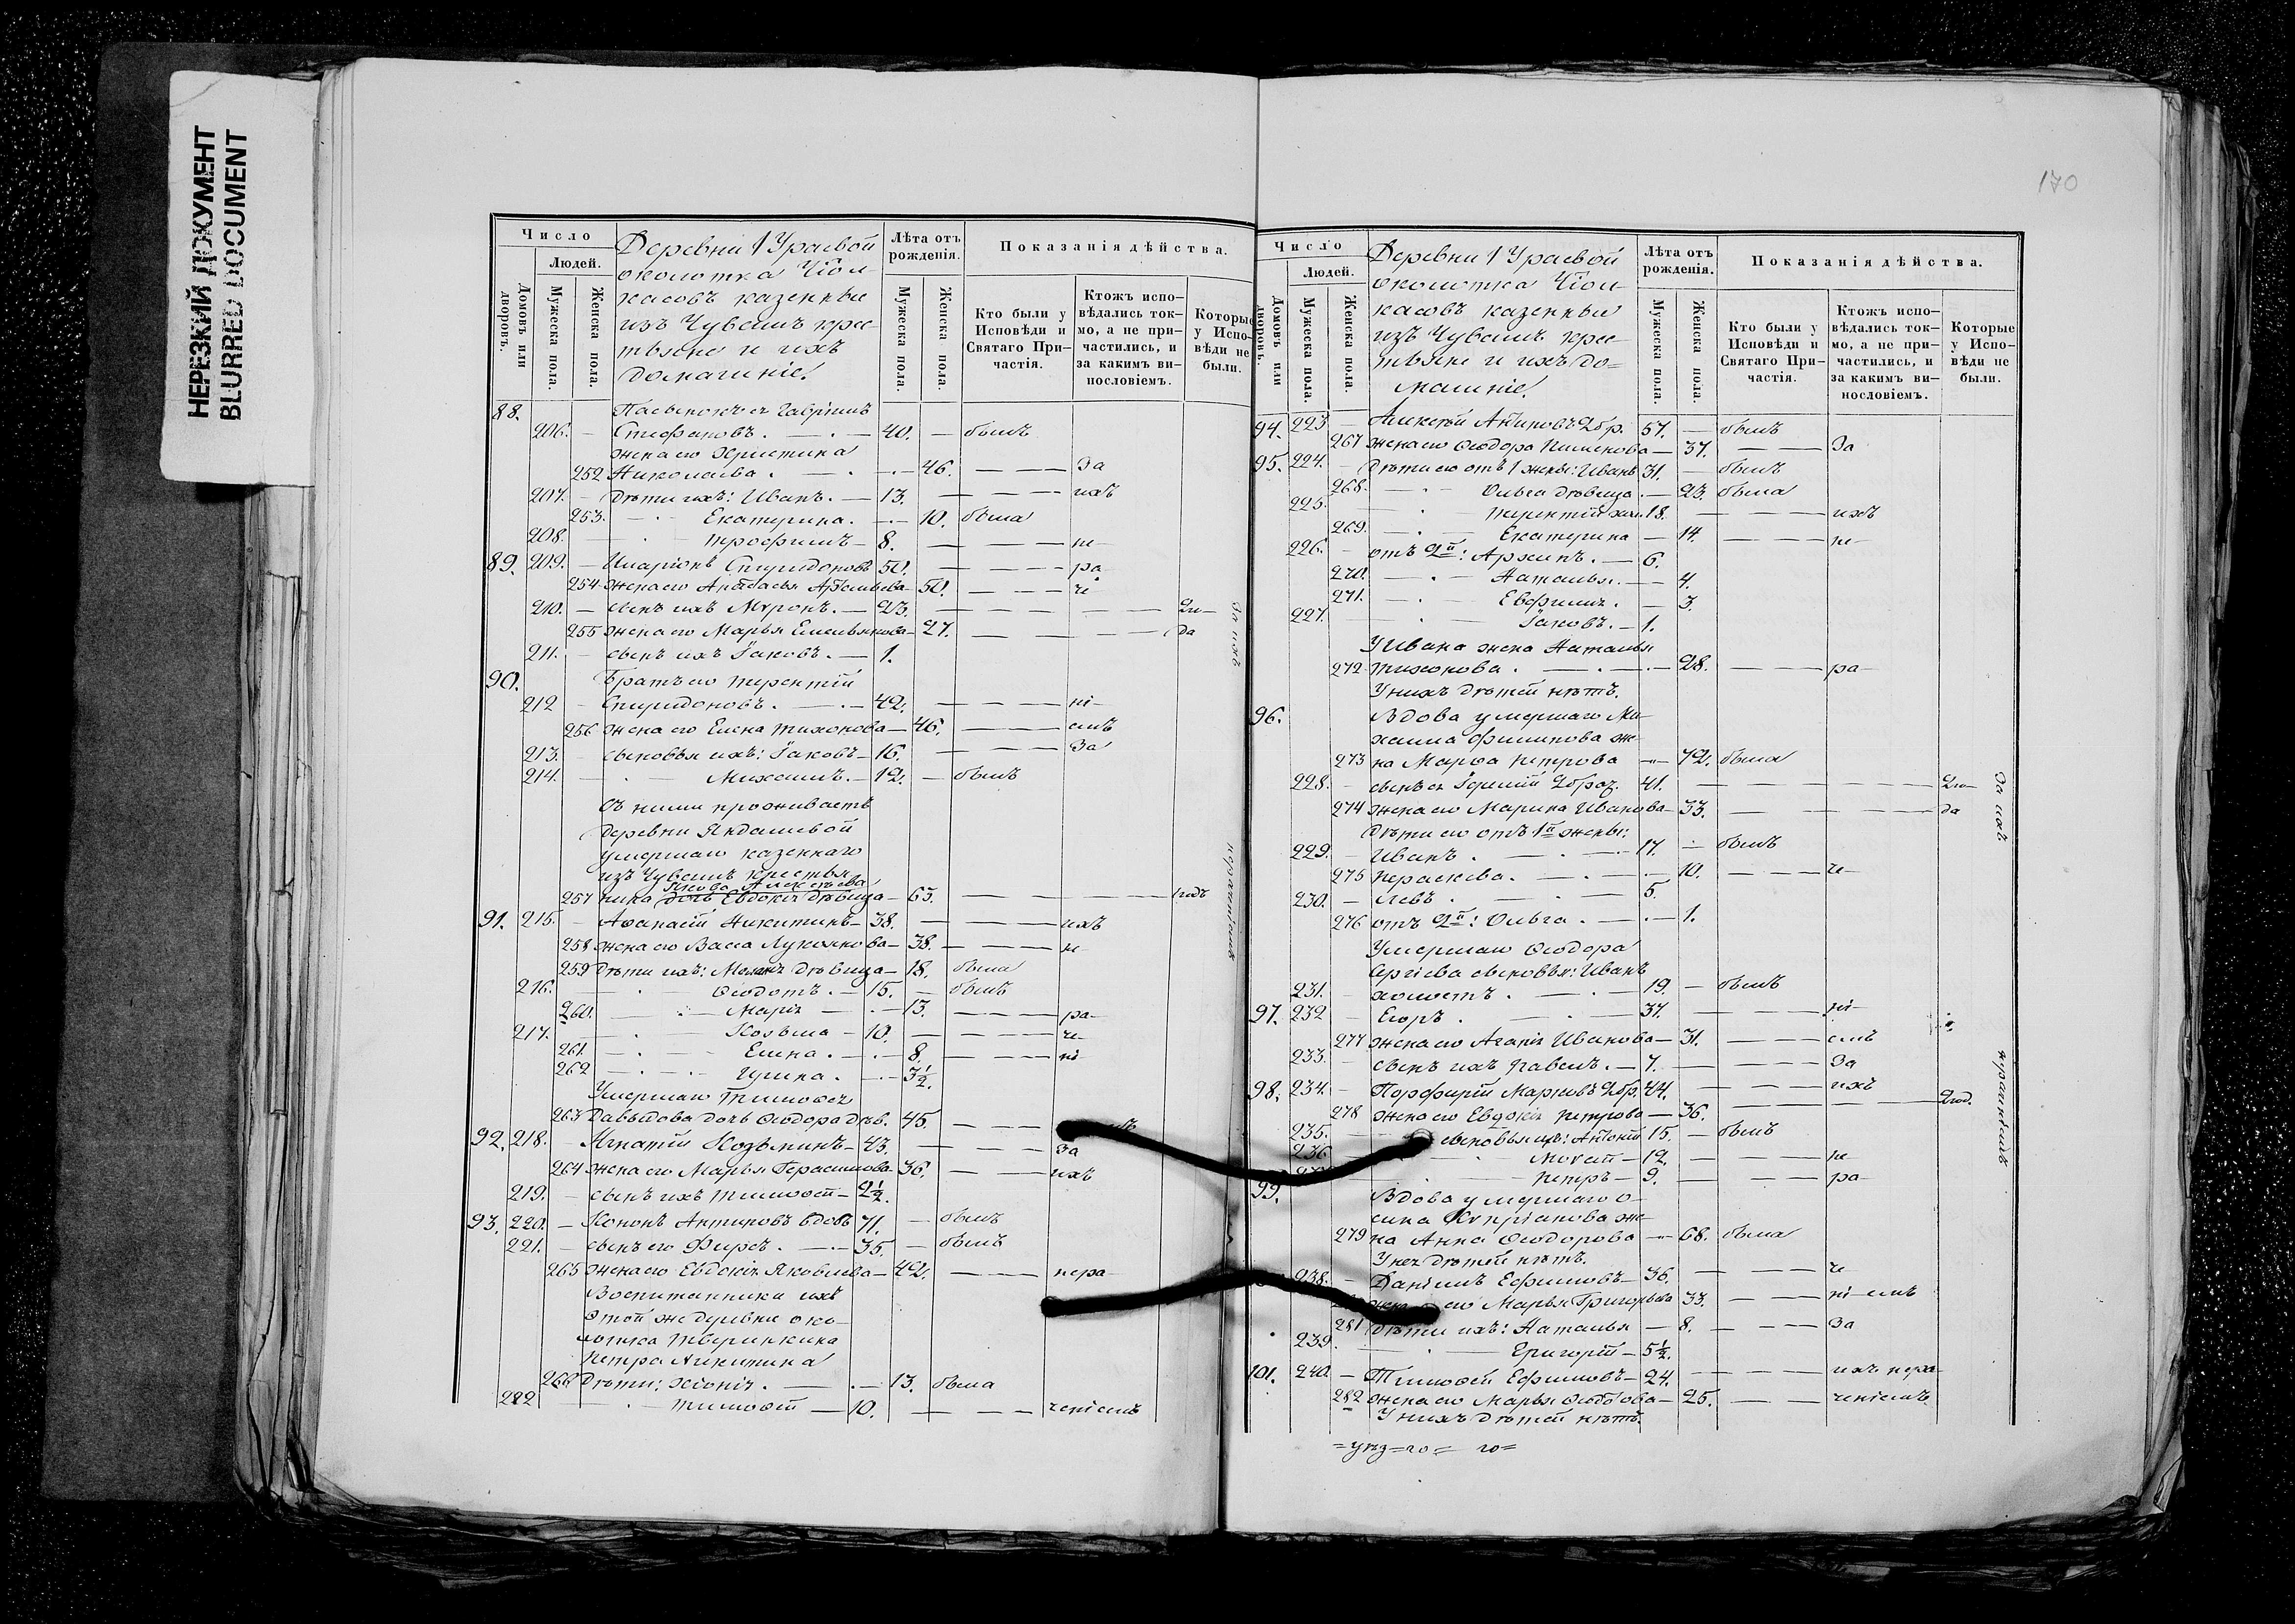 НЕРЕЗКИЙ ДОКУМЕНТ
BLURRED DOCUMENT
Число
Людей.
Домовъ или дворовъ.
Мужеска пола.
Женска пола.
Деревни 1 Ураевой
околотка
касовъ казенные
изъ Чувашъ крес-
тьяне и ихъ
домашніе.
Лѣта отъ рожденія.
Мужеска пола.
Женска пола.
Показанія дѣйства.
Кто были у Исповѣди и Святаго При-частія.
Ктожъ испо-вѣдались ток-мо, а не при-частились, и за какимъ ви-нословіемъ.
Которые у Испо-вѣди не были.
88. Пасынокъ ея Гавріилъ
206. — Стефановъ. — 40. — былъ
жена его Христина
252 Николаева. — 46. — За
207. — Дѣти ихъ: Иванъ. — 13. — ихъ
253. — Екатерина. — 10. была
208. — Трофимъ — 8. — не-
89. 209. — Иларіонъ Спиридоновъ 50. — ра-
254 жена его Анастасья — 50. — че
210. — сынъ ихъ Миронъ. — 23. — 2 го-
255 жена его Марья Емельянова — 27. — да
211. — сынъ ихъ Іаковъ. — 1.
90. Братъ его Терентій
212 — Спиридоновъ. — 42. — ні-
256 жена его Елена Тихонова — 46. — емъ
213. — сыновья ихъ: Іаковъ — 16. — За
214. — Михаилъ. — 12. — былъ
Съ ними проживаетъ
деревни Яндашевой
умершаго казеннаго
изъ Чувашъ крестья-
Якова Алексѣева
257 нина дочь Евдокія дѣвица — 63. — годъ
91. 215. — Аѳанасій Никитинъ — 38. — ихъ
258 жена его Васса Лукоянова — 38. — не
259 Дѣти ихъ: дѣвица — 18. была
216. — Ѳеодотъ. — 15. — былъ
260. — Марія — 13. — ра-
217. — Козьма — 10. — че-
261. — Елена. — 8. — ні
262 — Ирина. — 3½.
Умершаго Тимоѳея
263 Давыдова дочь Ѳеодора дѣв. 45.
92. 218. — Игнатій Козьминъ — 43. — За
264 жена его Марья Герасимова 36. — ихъ
219. — сынъ ихъ Тимоѳей — 2½.
93. 220. — Кононъ Антиповъ вдовъ 71. — былъ
221. — сынъ его Фирсъ. — 35. — былъ
265 жена его Евдокія Яковлева — 42. — нера-
Воспитанники ихъ
этой же деревни око-
лотка
Петра Никитина
266 Дѣти: Хіонія. — 13. была
222 — Тимоѳей — 10. — ченіемъ
За ихъ
нераченіемъ
170
Число
Людей.
Домовъ или дворовъ.
Мужеска пола.
Женска пола.
Деревни 1 Ураевой
околотка
касовъ казенные
изъ Чувашъ крес-
тьяне и ихъ до=
машніе.
Лѣта отъ рожденія.
Мужеска пола.
Женска пола.
Показанія дѣйства.
Кто были у Исповѣди и Святаго При-частія.
Ктожъ испо-вѣдались ток-мо, а не при-частились, и за какимъ ви-нословіемъ.
Которые у Испо-вѣди не были.
94. 223 — Алексѣй Антиповъ 2бр. 57. — былъ
267 жена его Ѳеодора Пименова — 37. — За
95. 224. — Дѣти его отъ 1 жены: Иванъ 31. — былъ
268. — Ольга дѣвица. — 23. была
225. — Терентій хол. 18. — ихъ
269. — Екатерина — 14. — не-
226. — отъ 2й: Архипъ. — 6.
270. — Наталья. — 4.
271. — Евфимія. — 3.
227. — Іаковъ. — 1.
У Ивана жена Наталья
272 Тихонова. — 28. — ра-
У нихъ дѣтей нѣтъ.
96. Вдова умершаго Ми-
хаила Филипова же-
273 на Марѳа Петрова — 72. была
228. — сынъ ея Герасим 2бр. 41. — 2 го-
274 жена его Марина Иванова — 33. — да
Дѣти его отъ 1й жены:
229. — Иванъ. — 17. — былъ
275 Параскева. — 10. — че-
230. — Левъ. — 5.
276 отъ 2й: Ольга. — 1.
Умершаго Ѳеодора
Сергіева сыновья: Иванъ
231. — холостъ. — 19. — былъ
97. 232 — Егоръ. — 37. — ні-
277 жена его Агапія Иванова — 31. — емъ
233. — сынъ ихъ Павелъ. — 7. — За
98. 234. — Порфирій Марковъ 2бр. 44. — ихъ
278 жена его Евдокія Петрова — 36. — 2 год.
235. — сыновья их: Антоній 15. — былъ
236. — Моѵсей — 12. — не
Петръ — 9. — ра-
99. Вдова умершаго О-
сипа Кипріанова же-
279 на Анна Ѳеодорова — 68. была
У нея дѣтей нѣтъ.
238. — Даніилъ Ефимовъ — 36. — че
его Марья Григорьева 33. — ні-емъ
281 Дѣти ихъ: Наталья — 8. — За
239. — Григорій — 5½.
101. 240. — Тимоѳей Ефимовъ — 24. — ихъ нера-
282 жена его Марья — 25. — ченіемъ
У нихъ дѣтей нѣтъ.
За ихъ